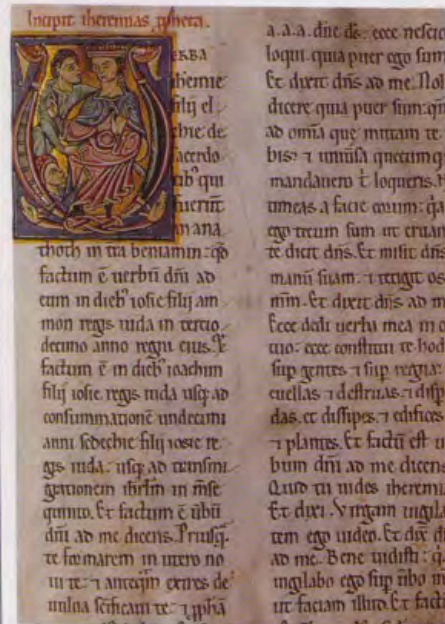 Incipit iheremias ppheta.
ERBA
hiemie
filij el
chie de
acerdo
tib' qui
fuerūt
in ana
thoth in tra beniamin: qđ
factum ē uerbū dñi ad
eum in dieb' iosie filij am
mon regis iuda in tercio
decimo anno regni eius. Et
factum ē in dieb' ioachim
filij iosie regis iuda usq; ad
consummationē undecimi
anni sedechie filij iosie re
gis iuda: usq; ad transmi
grationem ihrlm in m̄se
quinto. Et factum ē ūbū
dñi ad me dicens. Priusq̄
te formarem in utero no
ui te: ⁊ anteq̄m exires de
uulua sc̄ificaui te: ⁊ ppħā
a. a. a. dñe ds: ecce nescio
loqui. quia puer ego sum
Et dixit dñs ad me. Nol
dicere quia puer sum: q
ad omīa que mittam te
bis: ⁊ uniūsa quecumq
mandauero t̄ loqueris. N
timeas a facie eorum: q̄a
ego tecum sum ut eruam
te dicit dñs. Et misit dñs
manū suam. ⁊ tetigit os
mm̄. Et dixit dñs ad m
Ecce dedi uerba mea in o
tuo: ecce constitui te hod
sup gentes ⁊ sup regna:
euellas ⁊ destruas. ⁊ disp
das. et dissipes. ⁊ edifices
⁊ plantes. Et factū est u
bum dñi ad me dicens
Quid tu uides iheremi
Et dixi. Virgam uigila
tem ego uideo. Et dix̄ dn
ad me. Bene uidisti: q̄
uigilabo ego sup ūbo m
ut faciam illud. Et factū